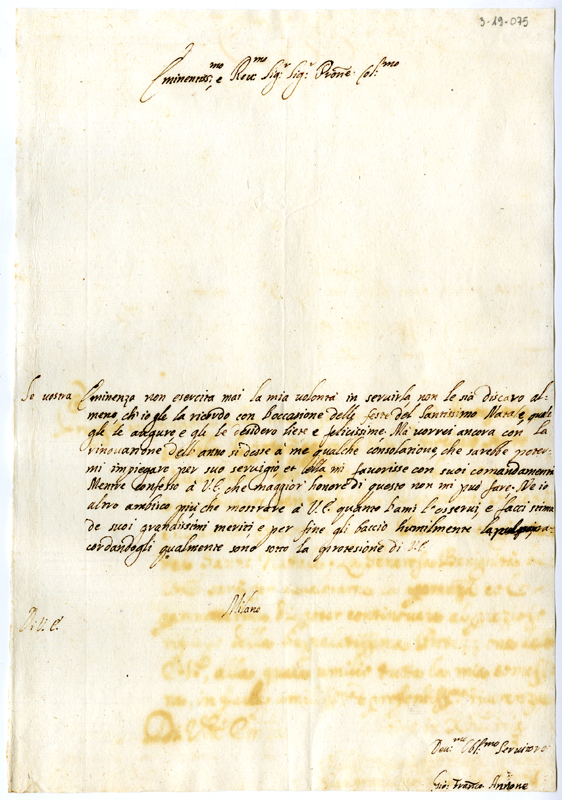 3-19-075
Eminentis.mo e Reu.mo Sig.r Sig.r Prōne Col.mo
Se vostra Eminenza non esercita mai la mia volontà in seruirla non le sia discaro al-
meno, ch'io gle la ricordo con l'occasione delle feste del Santissimo Natale, quale
gli le auguro e gli le desidero liete e felicissime. Ma vorrei ancora con la
rinouatione dell'anno si desse à me qualche consolatione che sarebbe poter-
mi impiegare per suo seruigio et ella mi fauorisse con suoi comandamenti
Mentre confesso à V.E. che maggior honore di questo non mi può fare. Ne io
altro ambisco più che mostrare à V.E. quanto l'ami l'osserui, e facci stima
de suoi grandissimi meriti, e per fine gli baccio humilmente
cordandogli qualmente sono sotto la protesione di V.E.
Di V.E. Milano
Deu.mo Obl.mo Seruitore
Gio: Franco. Annone